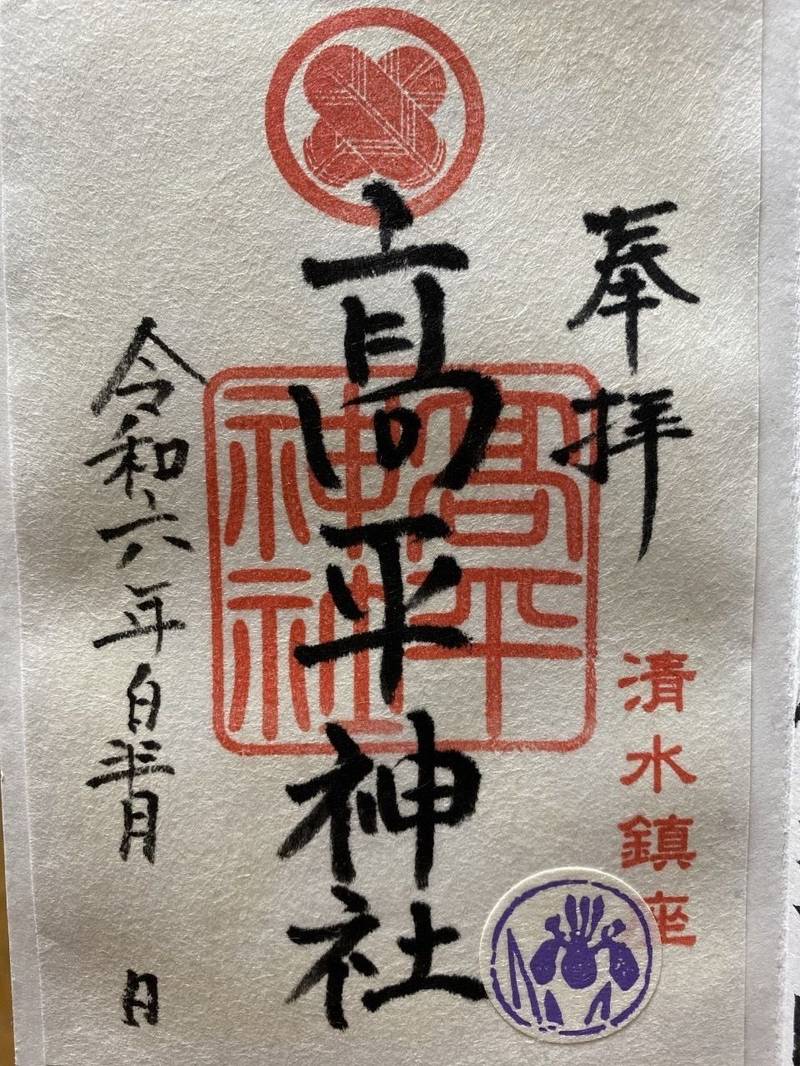 奉拝
清水鎮座
髙平神社
髙平
神社
令和六年皐月 日